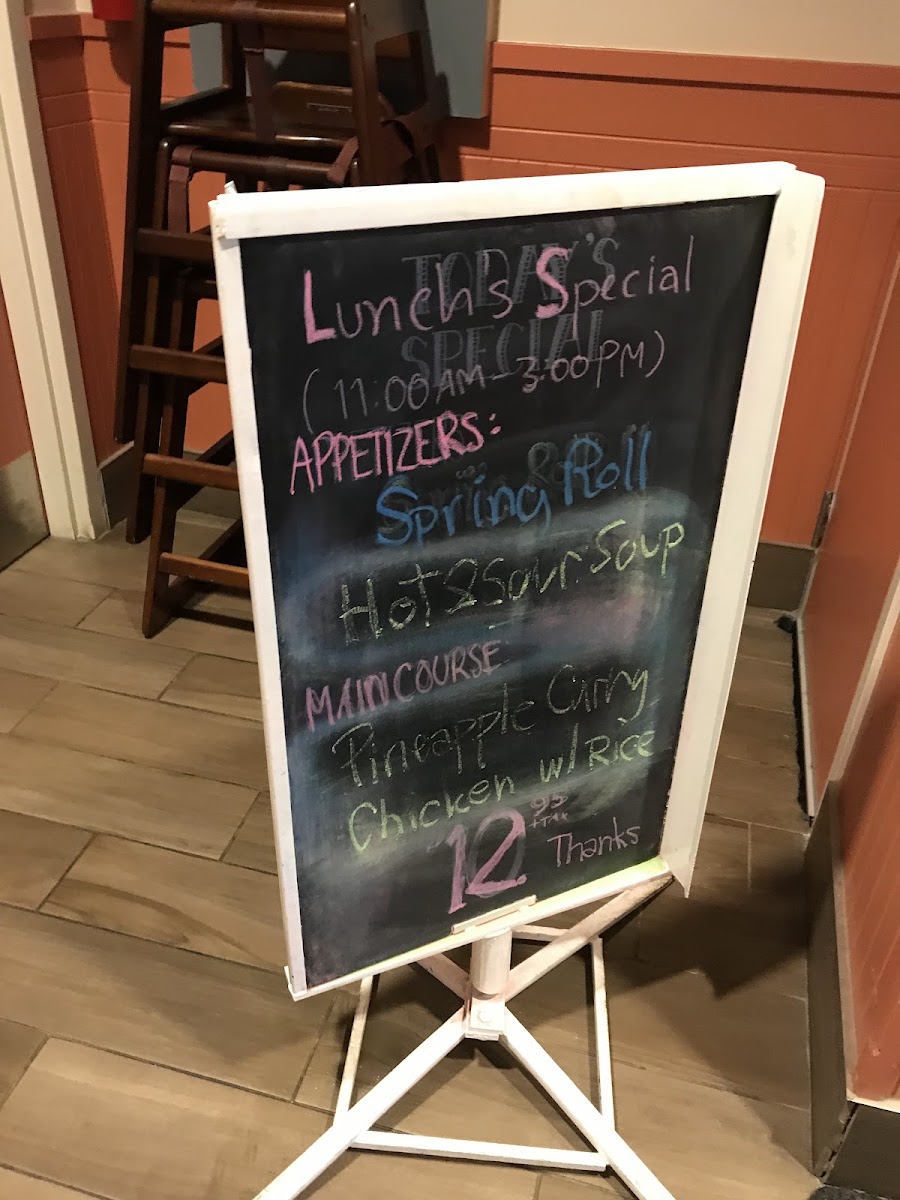 Lunch's Special
(11:00 AM - 3:00 PM)
APPETIZERS:
Spring Roll
Hot & Sour Soup
MAIN COURSE:
Pineapple Curry
Chicken w/ RICE
12.95 +TAX
Thanks
TODAY'S
SPECIAL